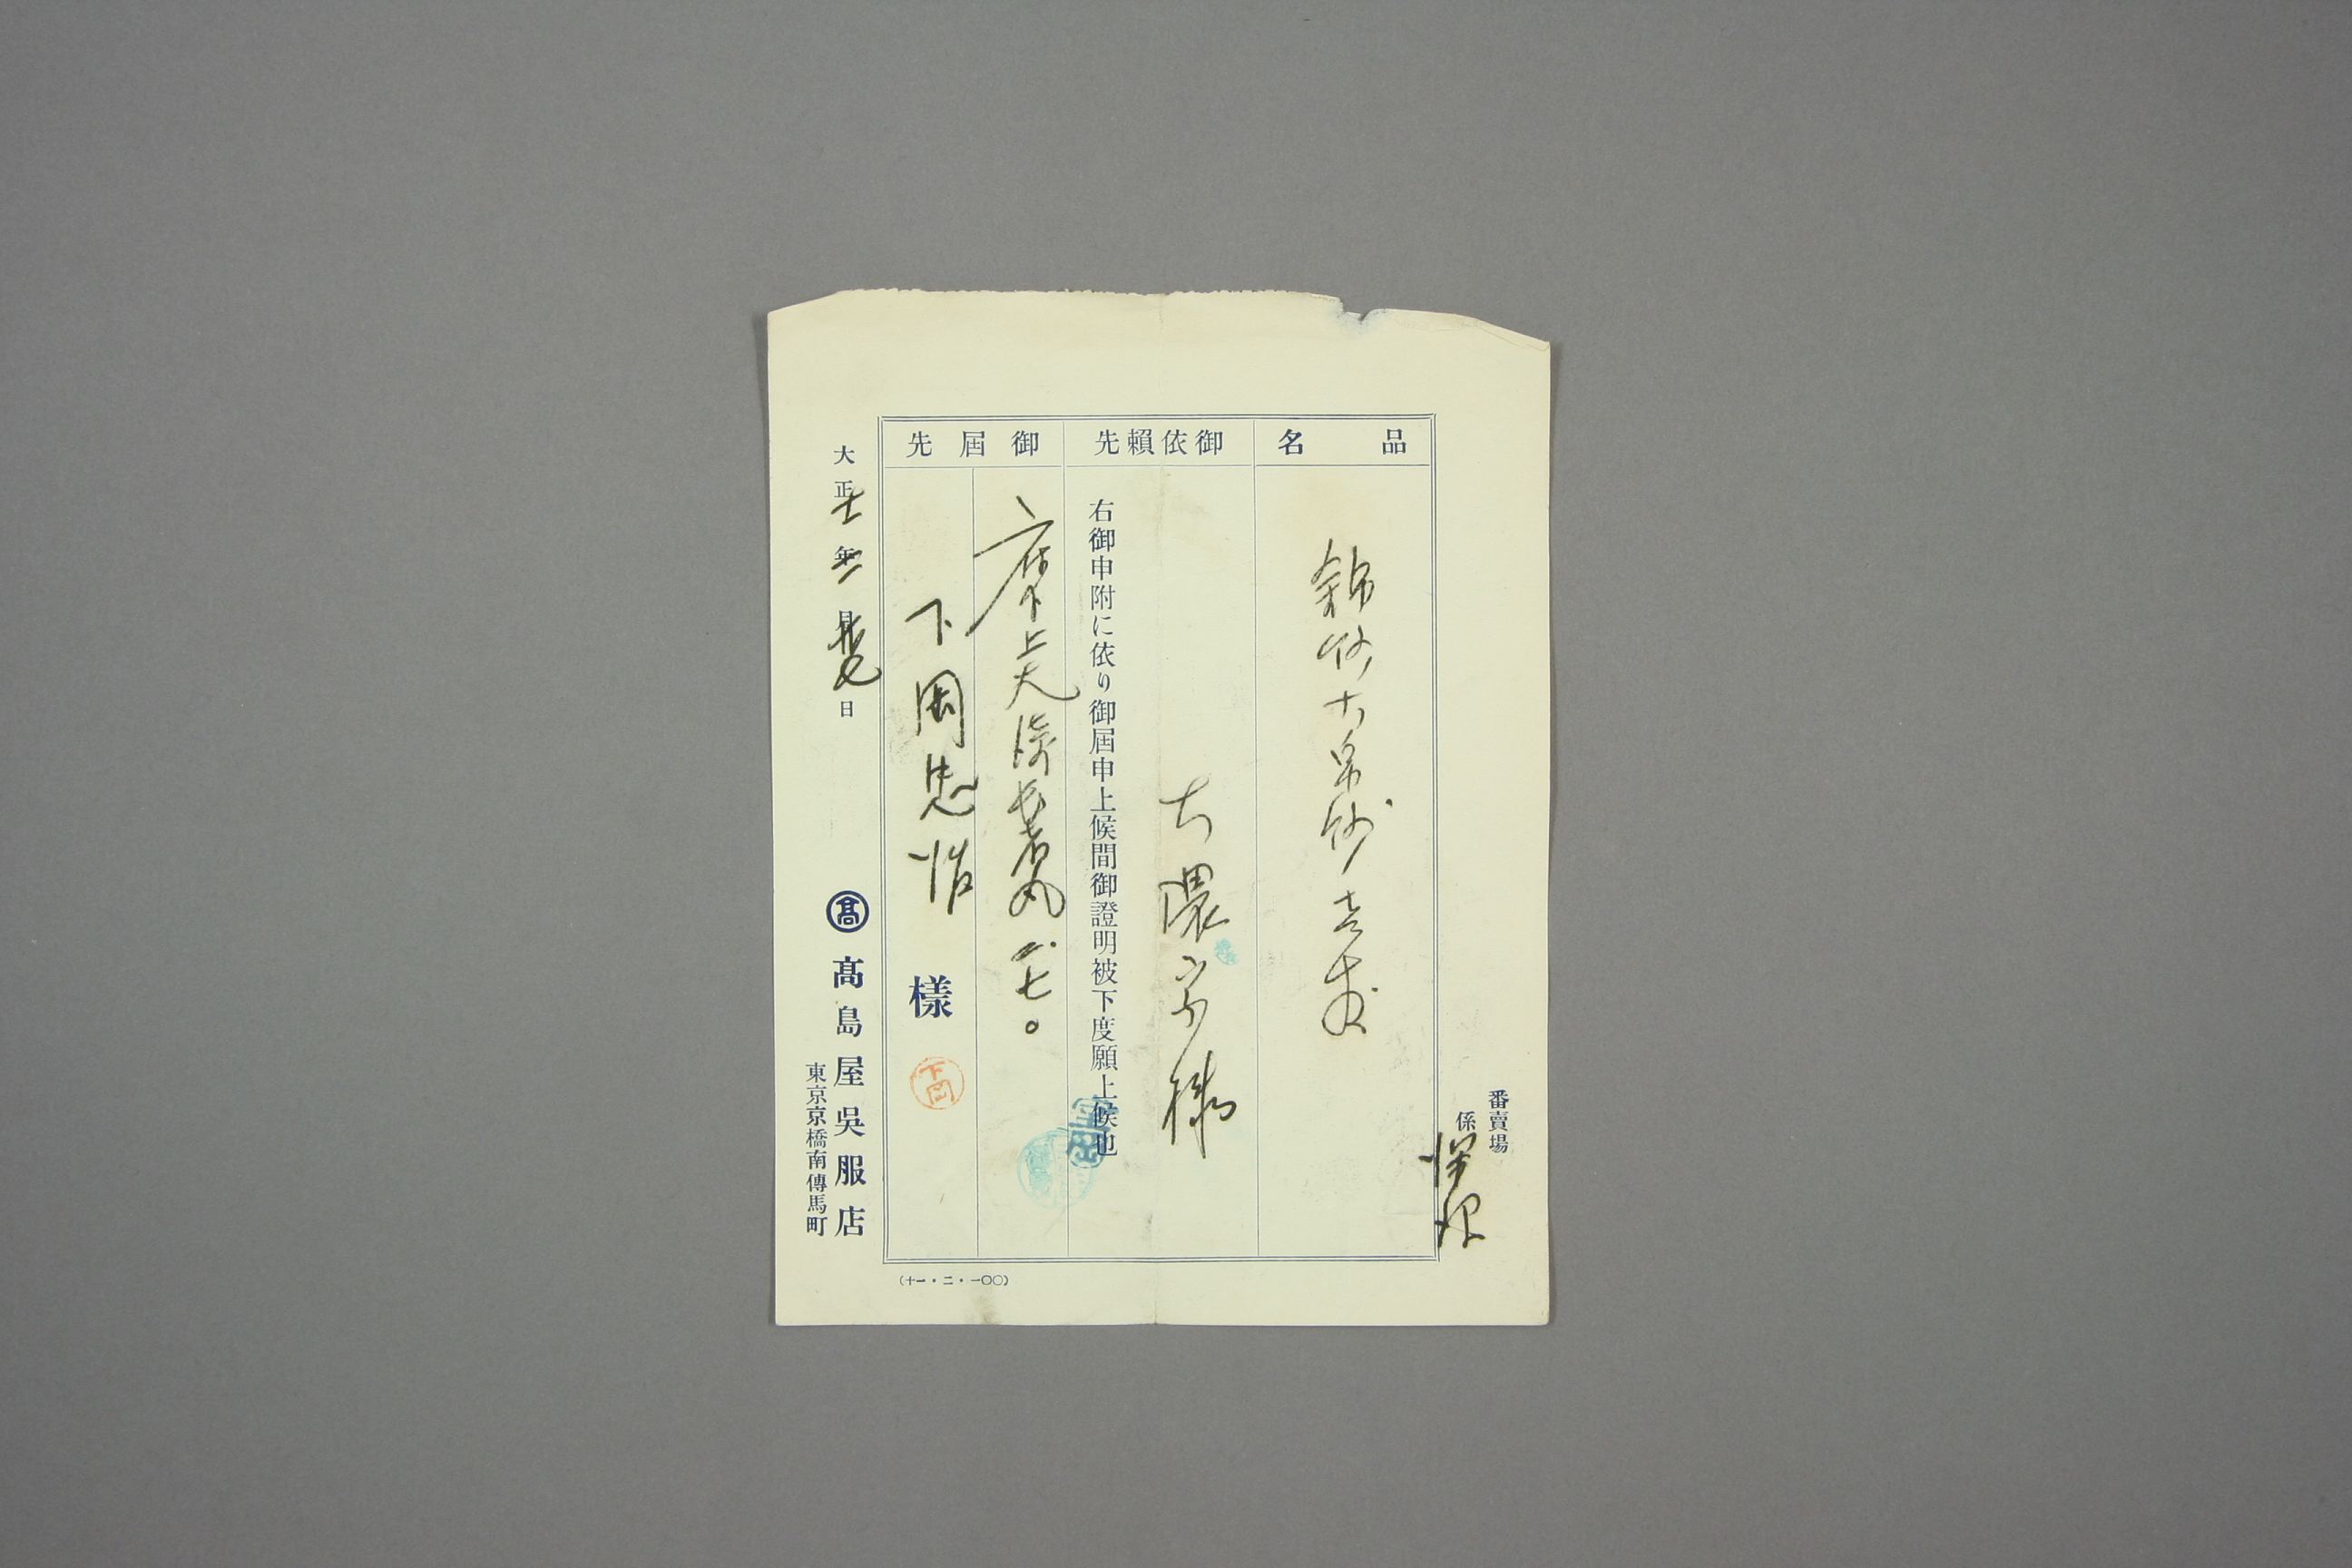 番賣場
係
品名
錦紗大帛紗 壱枚
御依賴先
大隈家様
右御申附に依り御屆申上候間御證明被下度願上候也
御屆先
下岡忠治 樣
下岡
大正十一年二月 日
髙
髙島屋吳服店
東京京橋南傳馬町
(十一・二・一〇〇)